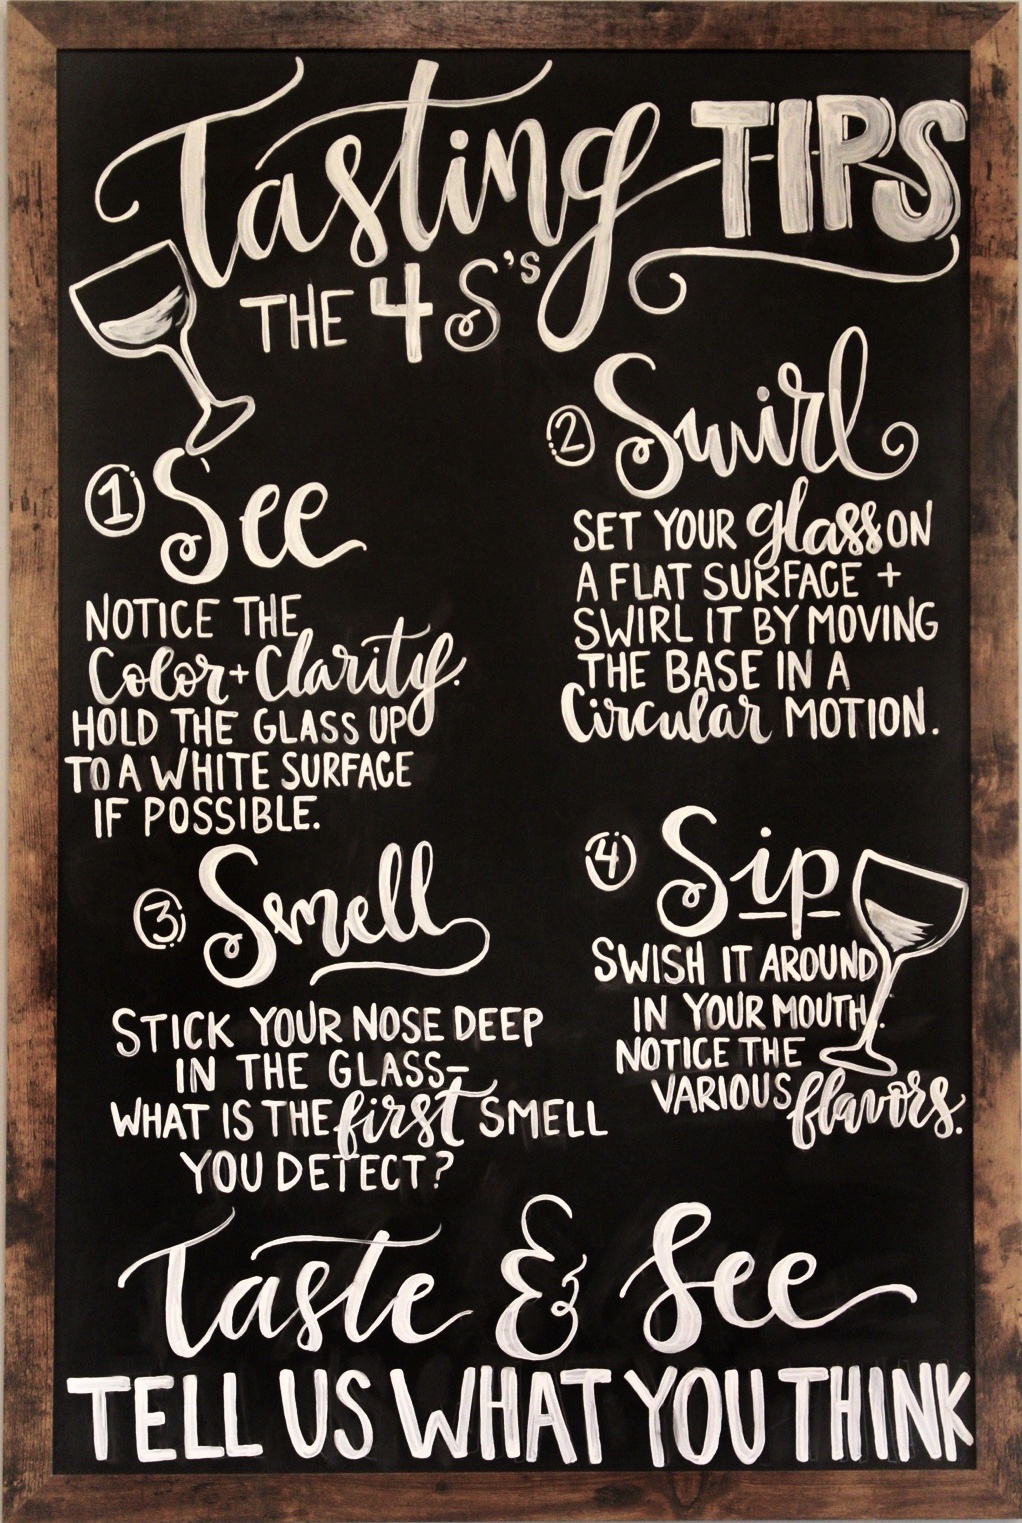 Tasting TIPS
THE 4 S's
1 See
NOTICE THE
Color + Clarity.
HOLD THE GLASS UP
TO A WHITE SURFACE
IF POSSIBLE.
2 Swirl
SET YOUR glass ON
A FLAT SURFACE +
SWIRL IT BY MOVING
THE BASE IN A
Circular MOTION.
3 Smell
STICK YOUR NOSE DEEP
IN THE GLASS–
WHAT IS THE first SMELL
YOU DETECT?
4 Sip
SWISH IT AROUND
IN YOUR MOUTH.
NOTICE THE
VARIOUS flavors.
Taste & See
TELL US WHAT YOU THINK